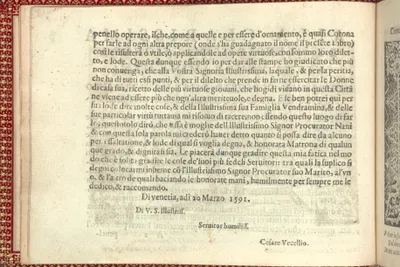 penello operare, ilche, come a quelle e per essere d'ornamento, è quasi Corona
per farle ad ogni altra prepore (onde s'ha guadagnato il nome si presso e altro)
così le risulterà d'utile, o applicandole ad opere virtuose, con somma loro
to, e lode. Questa dunque essendo io per dar alle stampe ho giudicato che più
non convenga, che alla Vostra Signoria Illustrissima, la quale, & per la peritia,
che ha di tutti essi punti, & per il diletto che prende in farne essercitar le Donne
di casa sua, ricetto delle più virtuose giovani, che hoggi dì vivano in questa Città
ne viene ad essere più che ogn'altra meritevole, e degna. E se ben potrei qui per
sua lode dire molte cose, & della Illustrissima sua Famiglia Vendramina, & delle
sue particolar virtù tuttavia mi risolvo di tacere, non essendo questo luogo di far
lo; questo solo dirò che essa è moglie dell'Illustrissimo Signor Procurator Nani
& con questa sola parola mi crederò haver detto quanto si possa dire da alcuno
per essaltatione, & lode di qual si voglia degna, & honorata Matrona di qualun
que grado, & dignità si sia. Le piacerà dunque gradire questa mia fatica nel mo
do che è solita gradire le cose de' suoi più fedeli Servitori: tra quali la suplico si
degni collocarmi insieme co l'Illustrissimo Signor Procurator suo Marito, al'un
o, & l'altro de quali baciando le honorate mani, humilmente per sempre me le
dedico, & raccomando.
Di Venetia, adi 20 Marzo 1591.
Di V. S. Illustriss.
Servitor humiliss.
Cesare Vecellio.